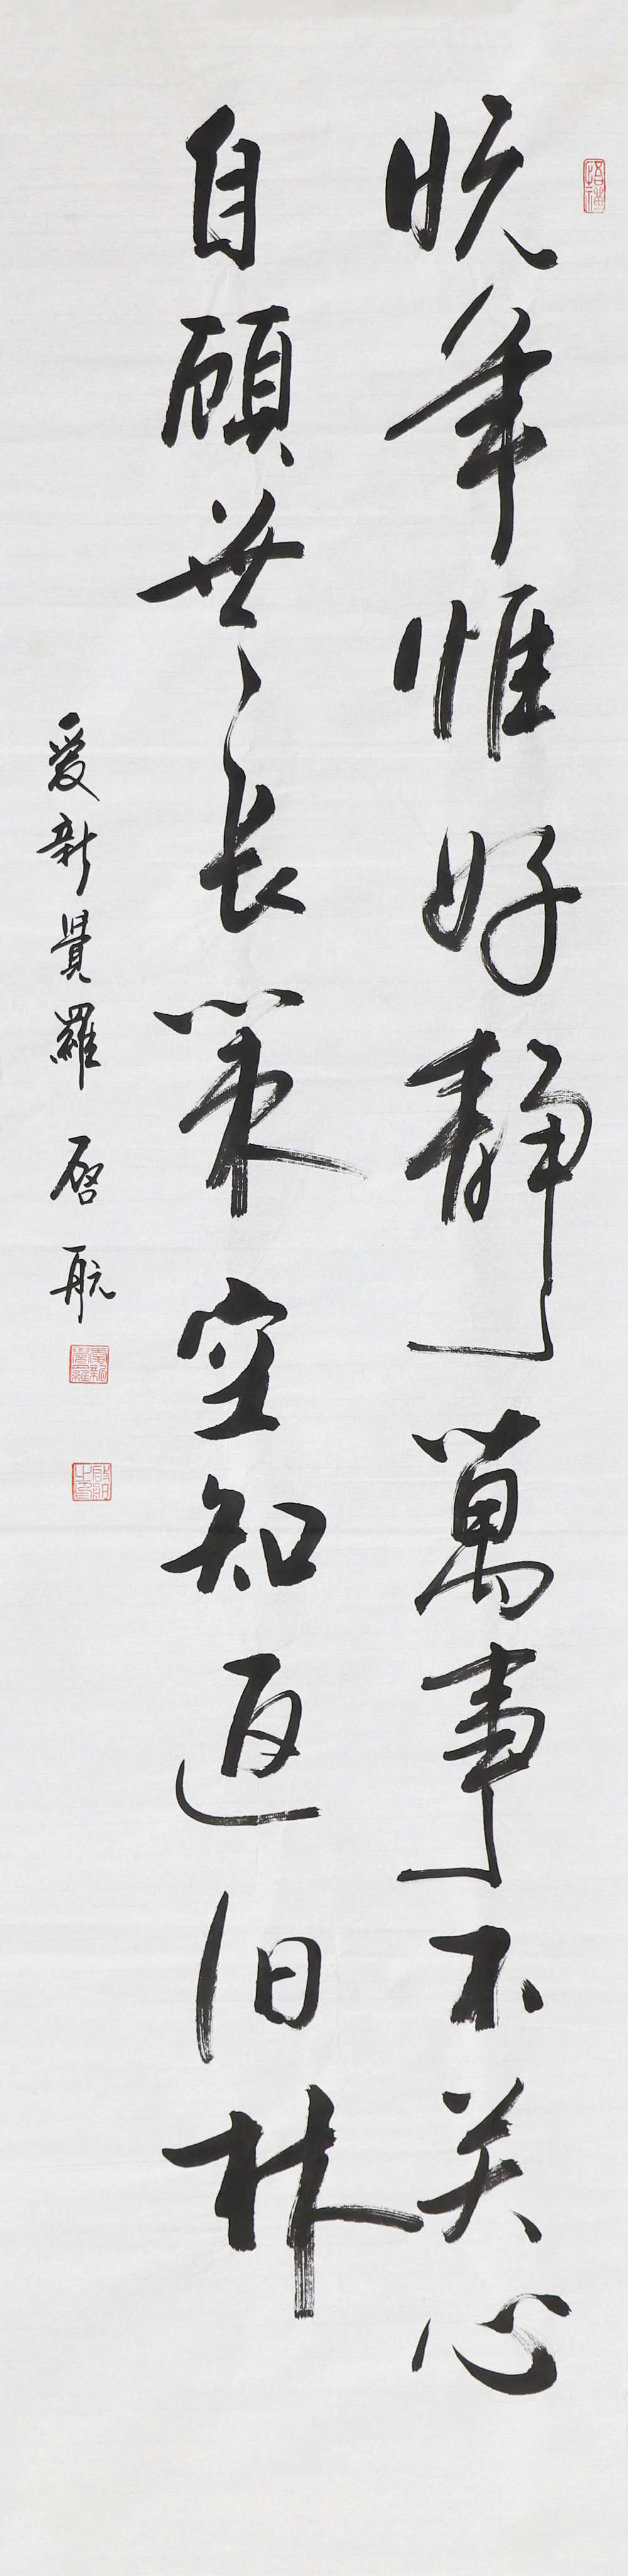 晚年惟好静萬事不关心
自顾無长策空知返旧林
爱新覺羅 啓航